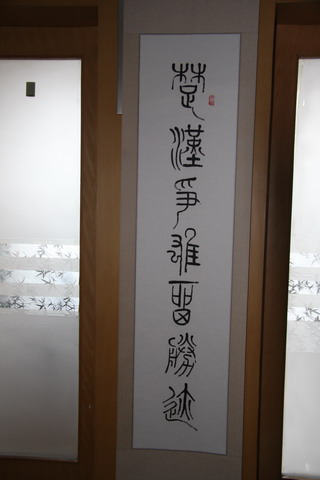 楚漢爭雄留勝迹